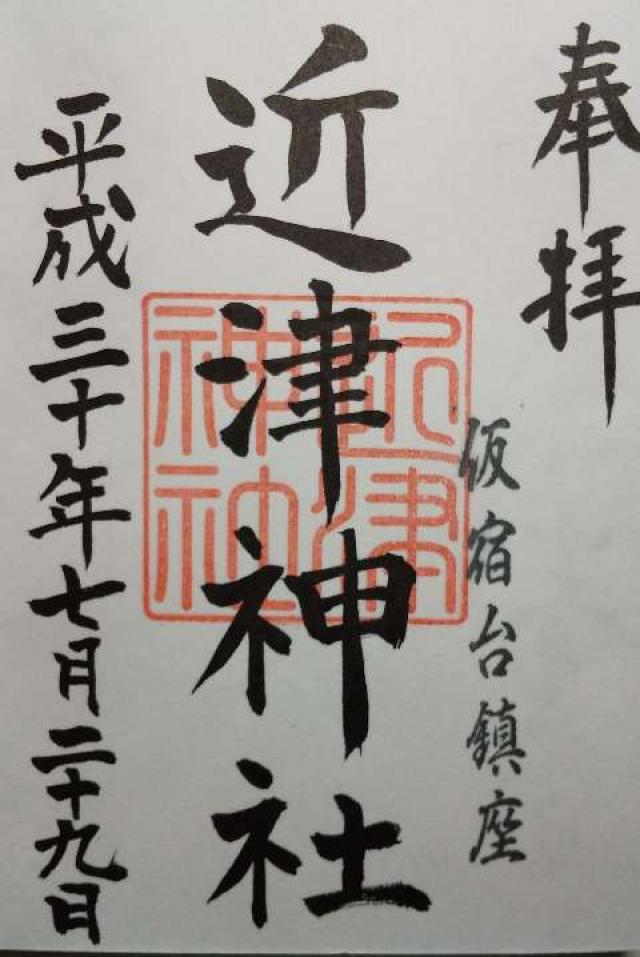 奉拝
仮宿台鎮座
近津神社
近津神社
平成三十年七月二十九日